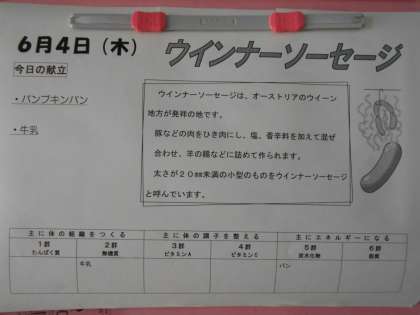 6月4日（木）
ウインナーソーセージ
今日の献立
・パンプキンパン
・牛乳
ウインナーソーセージは、オーストリアのウイーン
地方が発祥の地です。
豚などの肉をひき肉にし、塩、香辛料を加えて混ぜ
合わせ、羊の腸などに詰めて作られます。
太さが20㎜未満の小型のものをウインナーソーセージ
と呼んでいます。
主に体の組織をつくる 主に体の調子を整える 主にエネルギーになる
1群 2群 3群 4群 5群 6群
たんぱく質 無機質 ビタミンA ビタミンC 炭水化物 脂質
牛乳 パン